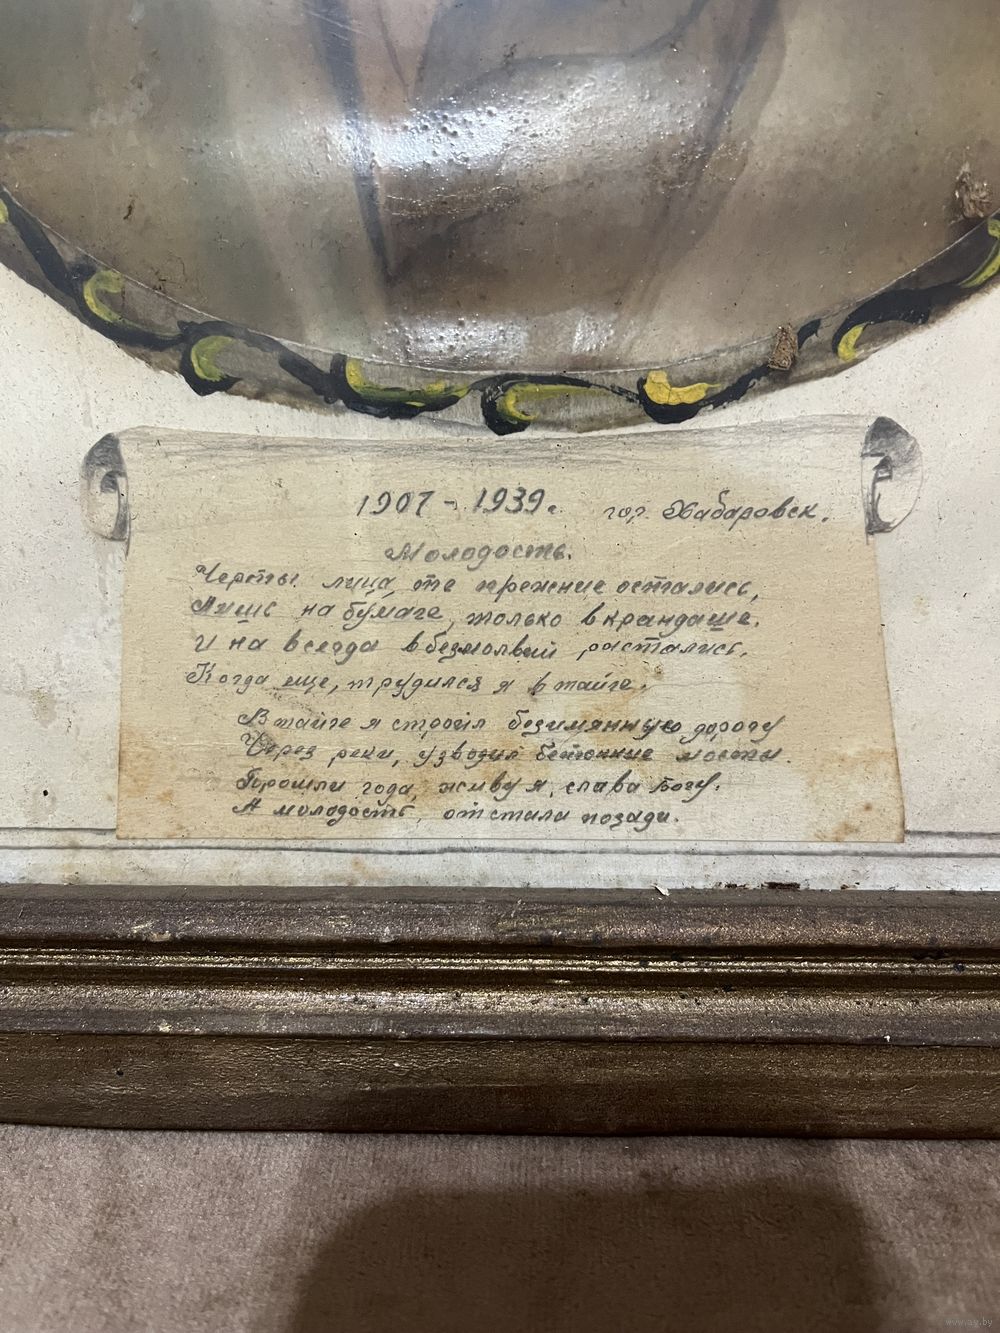 1907 - 1939. гор. Хабаровск.
Молодость.
Черты лица, оте прежние остались,
Лишь на бумаге, только вкрандаше.
И на всегда вбезмолвии растались.
Когда еще, трудился я в тайге.
В тайге я строил безимянную дорогу
Через реки, узводил бетонние мосты.
Прошли года, живу я, слава Богу.
А молодость, отстала позади.
www.ay.by